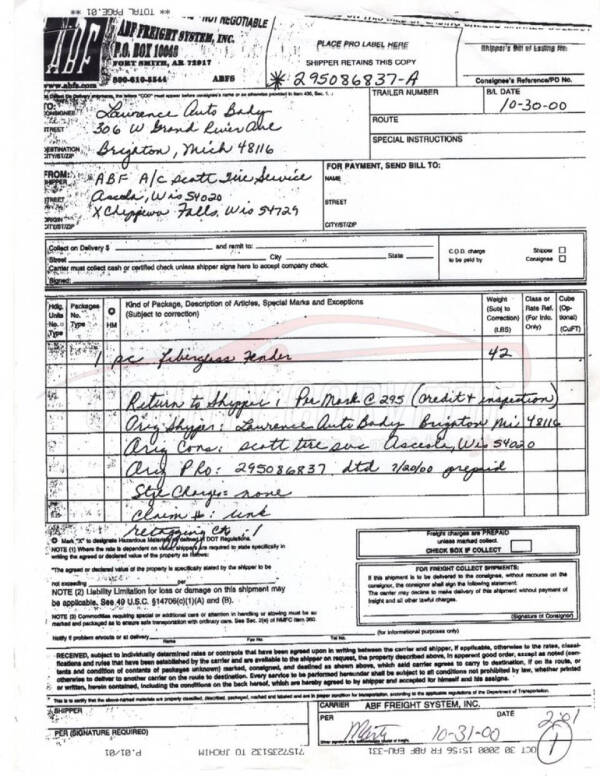 ** TOTAL PAGE.01 **
NOT NEGOTIABLE
ABF
ABF FREIGHT SYSTEM, INC.
P.O. BOX 10048
FORT SMITH, AR 72917
www.abfs.com 800-610-5544 ABFS
PLACE PRO LABEL HERE
SHIPPER RETAINS THIS COPY
* 295086837-A
Shipper's Bill of Lading No.
Consignee's Reference/PO No.
TRAILER NUMBER
B/L DATE
10-30-00
ROUTE
SPECIAL INSTRUCTIONS
TO:
CONSIGNEE Lawrence Auto Body
STREET 306 W Grand River Ave
DESTINATION Brighton, Mich 48116
CITY/ST/ZIP
FROM:
SHIPPER ABF A/C Scott Tire Service
STREET Asceola, Wis 54020
ORIGIN X Chippewa Falls, Wis 54729
CITY/ST/ZIP
FOR PAYMENT, SEND BILL TO:
NAME
STREET
CITY/ST/ZIP
Collect on Delivery $ and remit to:
Street City State
Carrier must collect cash or certified check unless shipper signs here to accept company check.
Signed:
C.O.D. charge to be paid by
Shipper
Consignee
Hdlg. Units No. Type
Packages No. Type
HM
Kind of Package, Description of Articles, Special Marks and Exceptions
(Subject to correction)
Weight (Subj to Correction) (LBS)
Class or Rate Ref. (For Info. Only)
Cube (Optional) (CuFT)
1 pc Fiberglass Fender 42
Return to Shipper: Per Mark @ 295 (Credit + inspection)
Orig Shpper: Lawrence Auto Body Brighton Mi 48116
Orig Cons: Scott tire svc Asceola, Wis 54020
Orig PRo: 295086837 dtd 7/20/00 prepaid
Stge Charges: none
Claim #: unk
Mark "X" to designate Hazardous Materials as defined in DOT Regulations.
NOTE (1) Where the rate is dependent on value, shippers are required to state specifically in
writing the agreed or declared value of the property as follows:
"The agreed or declared value of the property is specifically stated by the shipper to be
not exceeding per
NOTE (2) Liability Limitation for loss or damage on this shipment may
be applicable. See 49 U.S.C. §14706(c)(1)(A) and (B).
NOTE (3) Commodities requiring special or additional care or attention in handling or stowing must be so
marked and packaged as to ensure safe transportation with ordinary care. See Sec. 2(e) of NMFC Item 360.
Notify if problem enroute or at delivery
Name Fax No. Tel No.
Freight charges are PREPAID
unless marked collect.
CHECK BOX IF COLLECT
FOR FREIGHT COLLECT SHIPMENTS:
If this shipment is to be delivered to the consignee, without recourse on the
consignor, the consignor shall sign the following statement:
The carrier may decline to make delivery of this shipment without payment of
freight and all other lawful charges.
(Signature of Consignor)
(for informational purposes only)
RECEIVED, subject to individually determined rates or contracts that have been agreed upon in writing between the carrier and shipper, if applicable, otherwise to the rates, classifi-
cations and rules that have been established by the carrier and are available to the shipper on request, the property described above, in apparent good order, except as noted (con-
tents and condition of contents of packages unknown) marked, consigned, and destined as shown above, which said carrier agrees to carry to destination, if on its route, or
otherwise to deliver to another carrier on the route to destination. Every service to be performed hereunder shall be subject to all conditions not prohibited by law, whether printed
or written, herein contained, including the conditions on the back hereof, which are hereby agreed to by shipper and accepted for himself and his assigns.
This is to certify that the above-named materials are properly classified, described, packaged, marked and labeled and are in proper condition for transportation, according to the applicable regulations of the Department of Transportation.
SHIPPER
PER (SIGNATURE REQUIRED)
CARRIER ABF FREIGHT SYSTEM, INC.
PER DATE
10-31-00
1
OCT 30 2000 15:56 FR ABF EAU-331 7157235132 TO JACHIM P.01/01